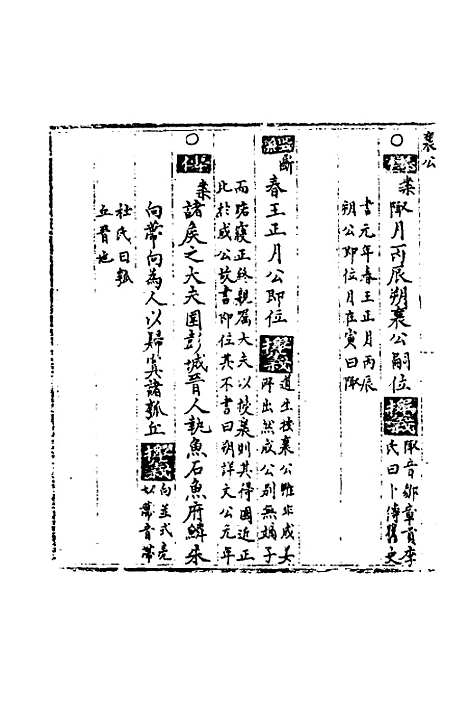 襄公
案陬月丙辰朔襄公嗣位
陬音鄒章貢李
氏曰卜傳舊史
書元年春王正月丙辰
朔公即位月在寅曰陬
斷春王正月公即位
道生按襄公雖非成姜
所出然成公別無嫡子
而路寢正終親屬大夫以授是則其得國近正
此於成公故書即位其不書日朔詳文公元年
案諸侯之大夫圍彭城晉人執魚石魚府鱗朱
向帶向為人以歸寘諸瓠丘
向並式亮
切帶音帶
杜氏曰瓠
丘晉地